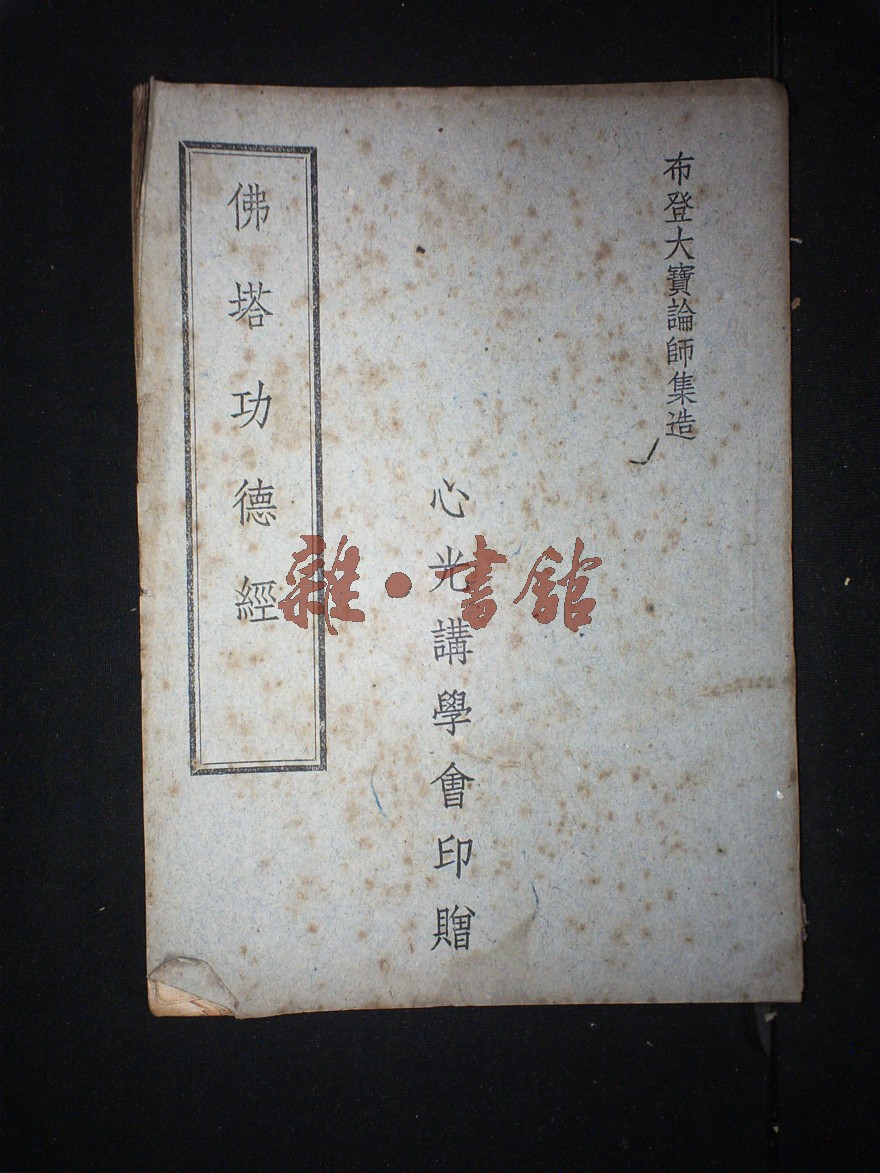 布登大寶論師集造
心光講學會印贈
佛塔功德經
雜·書館